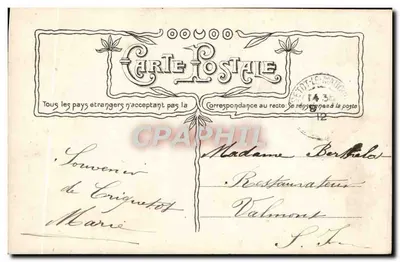 CARTE POSTALE
Tous les pays étrangers n'acceptant pas la Correspondance au recto Se renseigner à la poste
14 3
9
12
CPAPHIL
Souvenir
de Criquetot
Marie
Madame Berthelot
Restaurateur
Valmont
S. Inf